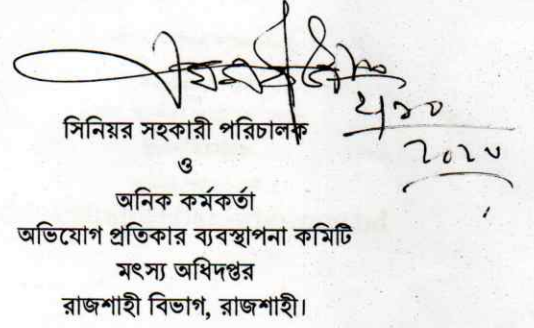 সিনিয়র সহকারী পরিচালক
ও
অনিক কর্মকর্তা
অভিযোগ প্রতিকার ব্যবস্থাপনা কমিটি
মৎস্য অধিদপ্তর
রাজশাহী বিভাগ, রাজশাহী।